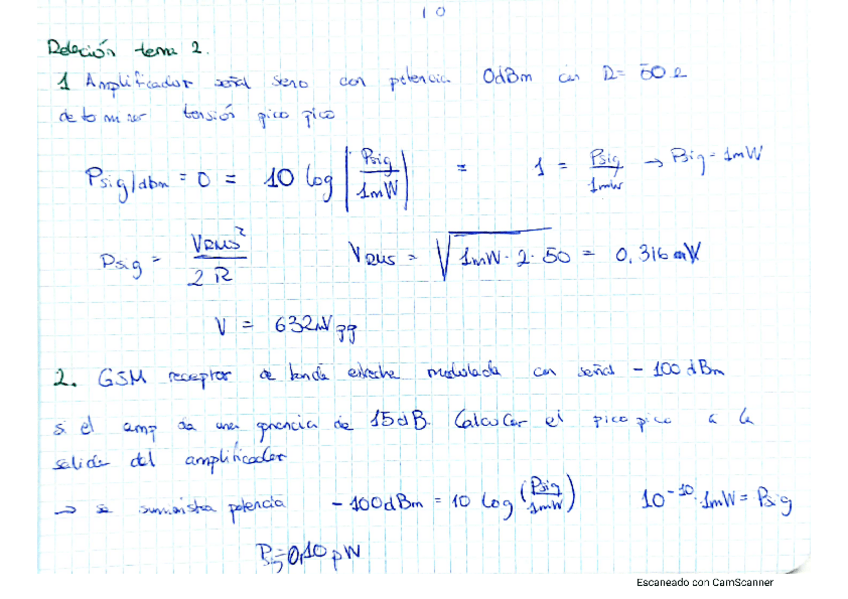 10
Relación tema 2.
1 Amplificador señal seno con potencia 0dBm con R= 50Ω
determinar tensión pico pico
Psig|dbm = 0 = 10 log |Psig/1mW| = 1 = Psig/1mW → Psig = 1mW
Psig = VRMS²/2R VRMS = √1mW · 2 · 50 = 0,316
V = 632mV pp
2. GSM receptor de banda estrecha modulada con señal -100dBm
si el amp da una ganancia de 15dB. Calcular el pico pico a la
salida del amplificador
→ se suministra potencia -100dBm = 10 log (Psig/1mW) 10⁻¹⁰ · 1mW = Psig
P = 0,10 pW
Escaneado con CamScanner